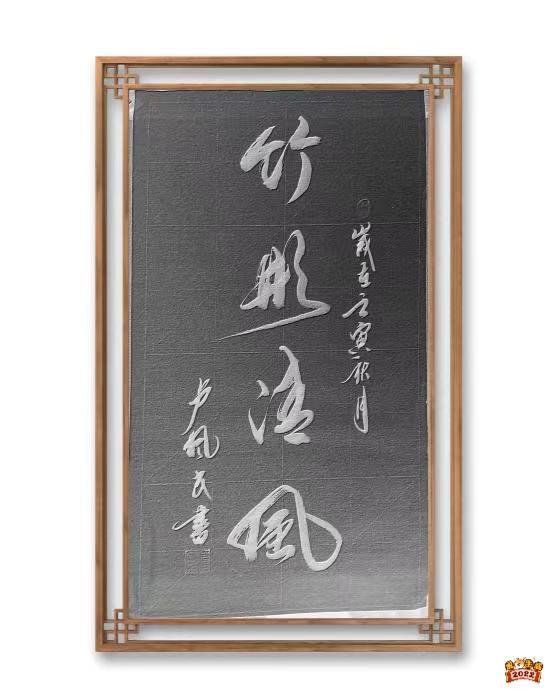 歲在壬寅秋月
竹影清風
卢枫民書
2022